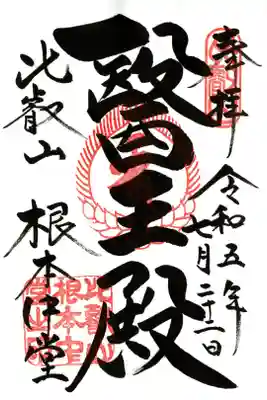 奉拝
令和五年
七月二十一日
醫王殿
比叡山 根本中堂
比叡山
根本中
堂之印